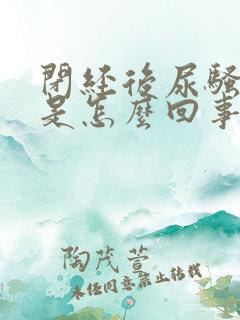 閉経後尿騷
是怎麼回事
陶茂萱
未經同意禁止轉載